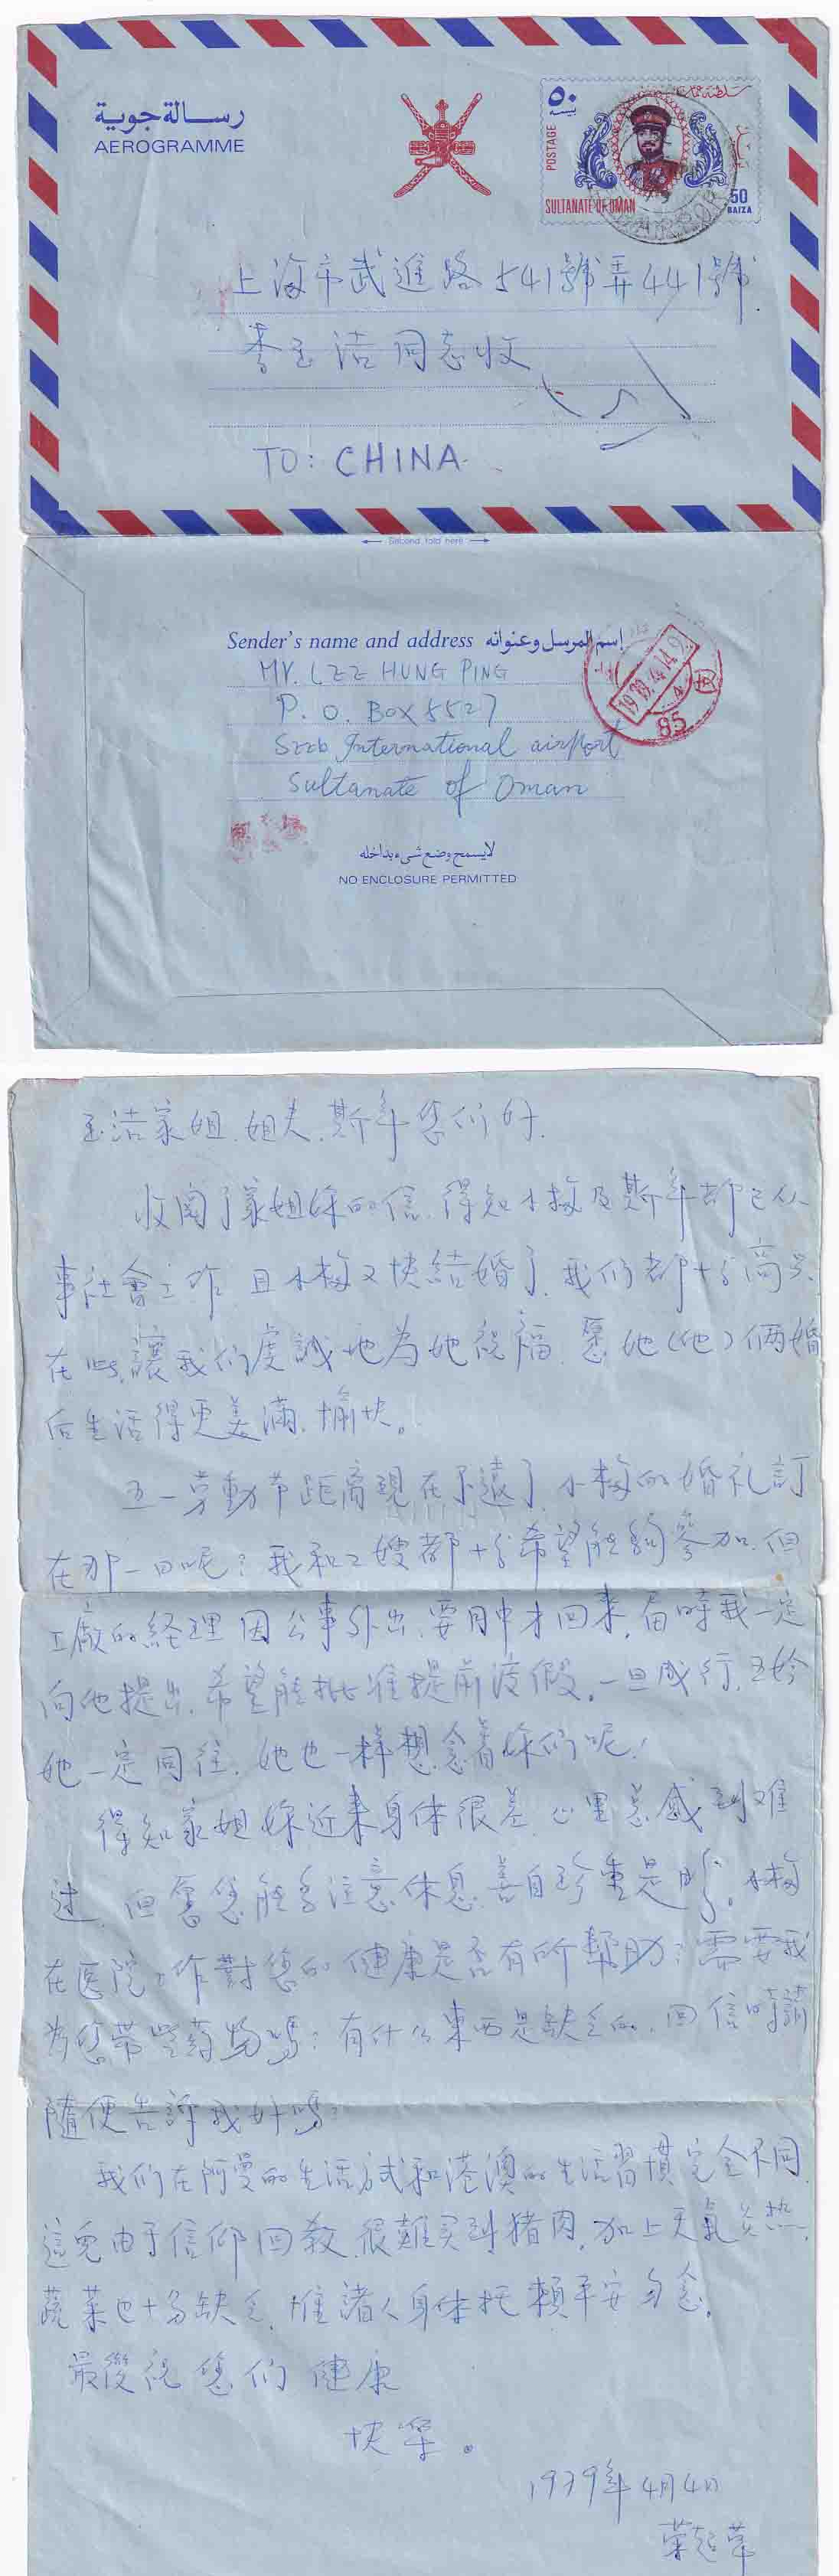 رسالة جوية
AEROGRAMME
٥٠
POSTAGE
SULTANATE OF OMAN
50
BAIZA
上海市武進路541號弄441號
李玉洁同志收
TO: CHINA
Second fold here
Sender's name and address إسم المرسل وعنوانه
Mr. LEE HUNG PING
P. O. Box 5527
Seeb International airport
Sultanate of Oman
1979.4.14.9
85
لايسمح وضع شيء بداخله
NO ENCLOSURE PERMITTED
玉洁家姐.姐夫.斯年您们好.
收阅了家姐妳的信.得知小梅及斯年都已从
事社會工作.且小梅又快結婚了.我们都十分高兴.
在此,讓我们虔誠地为她祝福.愿她(他)俩婚
后生活得更美滿.愉快。
五一劳動节距离現在不遠了.小梅的婚礼訂
在那一日呢?我和二嫂都十分希望能夠參加.但
工廠的経理因公事外出.要月中才回來.届時我一定
向他提出.希望能批准提前渡假。一旦成行.玉玲
她一定同往.她也一样想念着妳们呢!
得知家姐妳近來身体很差.心里总感到难
过.但愿您能多注意休息.善自珍重是盼。小梅
在医院工作對您的健康是否有所帮助?需要我
为您带些葯物嗎?有什么東西是缺乏的.回信時請
隨便告訴我好嗎?
我们在阿曼的生活方式和港澳的生活習慣完全不同.
這兒由于信仰回教.很難买到猪肉.加上天氣炎熱.
蔬菜也十分缺乏.惟諸人身体托賴平安勿念.
最後祝您们健康
快樂。
1979年4月4日